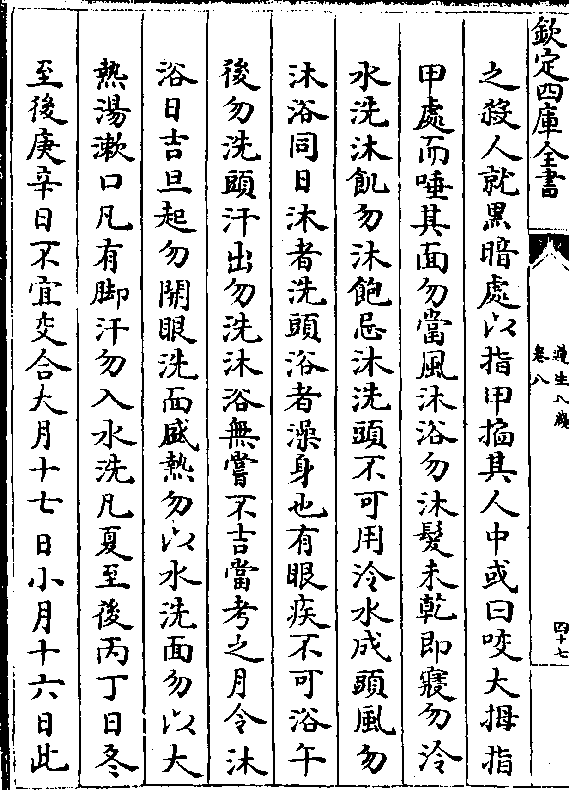 欽定四庫全書
遵生八牋
卷八
四十七
之殺人就黑暗處以指甲掐其人中或曰咬大拇指
甲處而唾其面勿當風沐浴勿沐髮未乾即寢勿冷
水洗沐飢勿沐飽忌沐洗頭不可用冷水成頭風勿
沐浴同日沐者洗頭浴者澡身也有眼疾不可浴午
後勿洗頭汗出勿洗沐浴無嘗不吉當考之月令沐
浴日吉旦起勿開眼洗面盛熱勿以水洗面勿以大
熱湯漱口凡有脚汗勿入水洗凡夏至後丙丁日冬
至後庚辛日不宜交合大月十七日小月十六日此